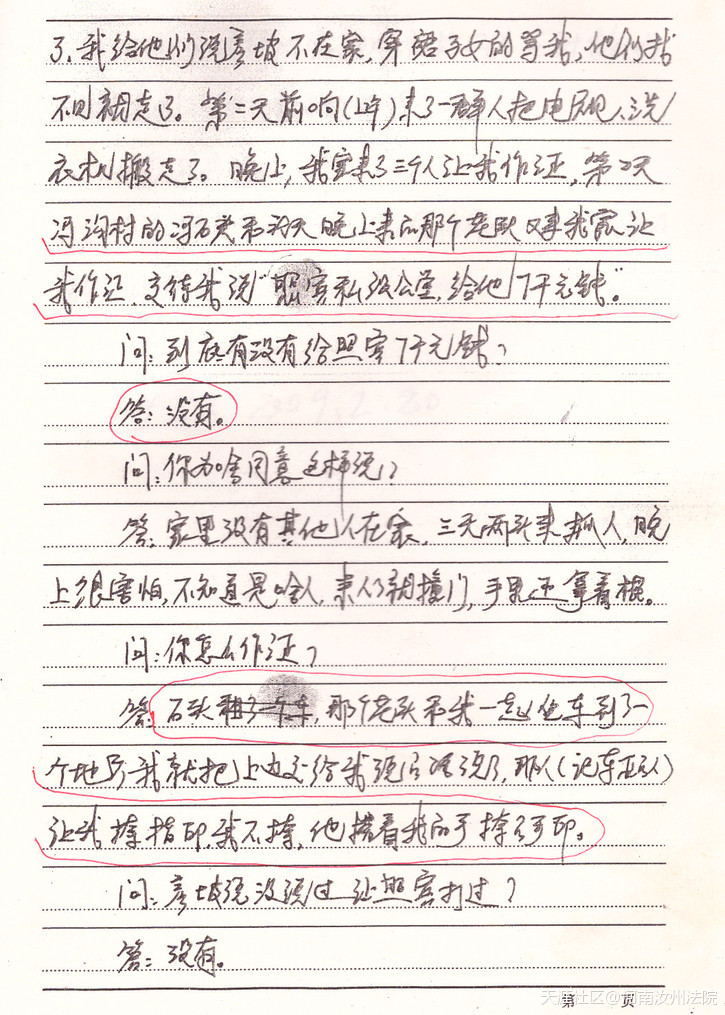 了、我给他们说彦坡不在家,穿裙子女的骂我,他们找
不到就走了。第二天前晌(上午)来了一群人把电视、洗
衣机搬走了。晚上,我家来了三个人让我作证,第二天
冯沟村的冯石头和前天晚上来的那个老头又来我家让
我作证,交待我说“照宾私设公堂,给他7千元钱”。
问:到底有没有给照宾7千元钱?
答:没有。
问:你为啥同意这样说?
答:家里没有其他人在家,三天两头来抓人,晚
上很害怕,不知道是啥人,来人就撞门,手里还拿着棍。
问:你怎么作证?
答:石头租了一个车,那个老头和我一起坐车到了一
个地方,我就把上边交给我说的话说了,那人(记录的人)
让我捺指印,我不捺,他搭着我的手捺了手印。
问:彦坡说没说过让照宾打过?
答:没有。
第 页
天涯社区@河南汝州法院